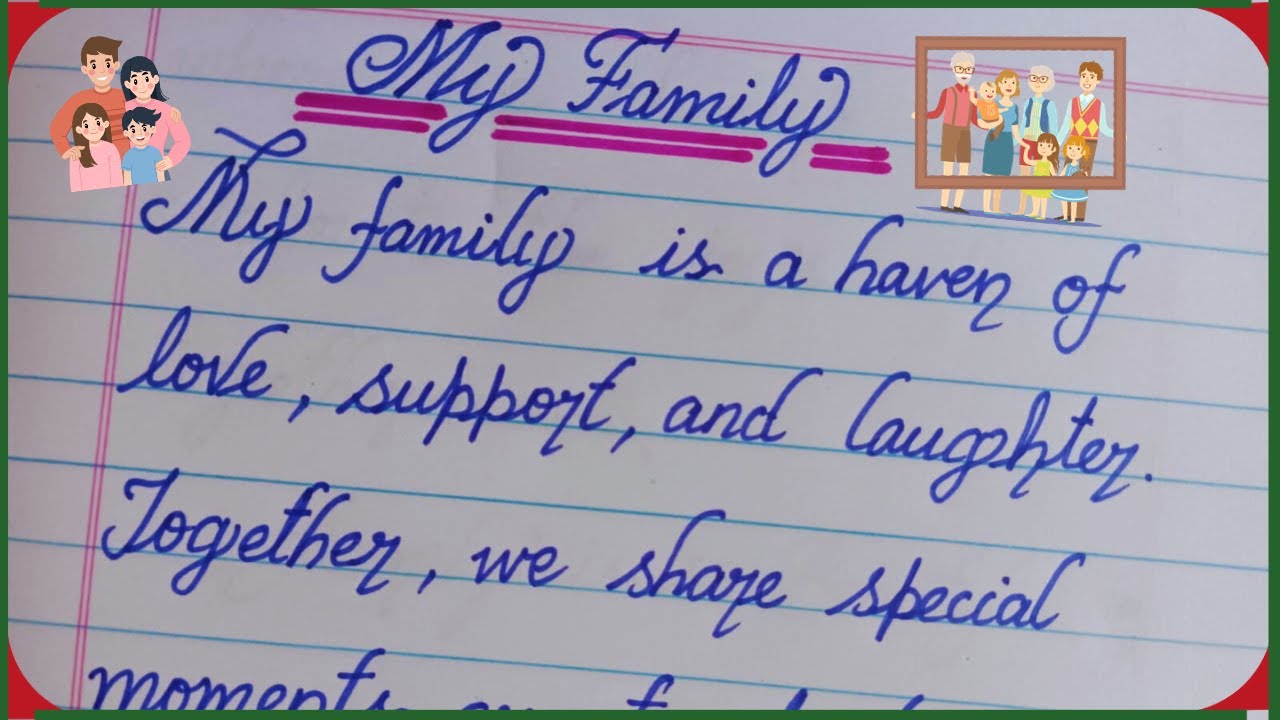 My Family
My family is a haven of
love, support, and laughter.
Together, we share special
moments